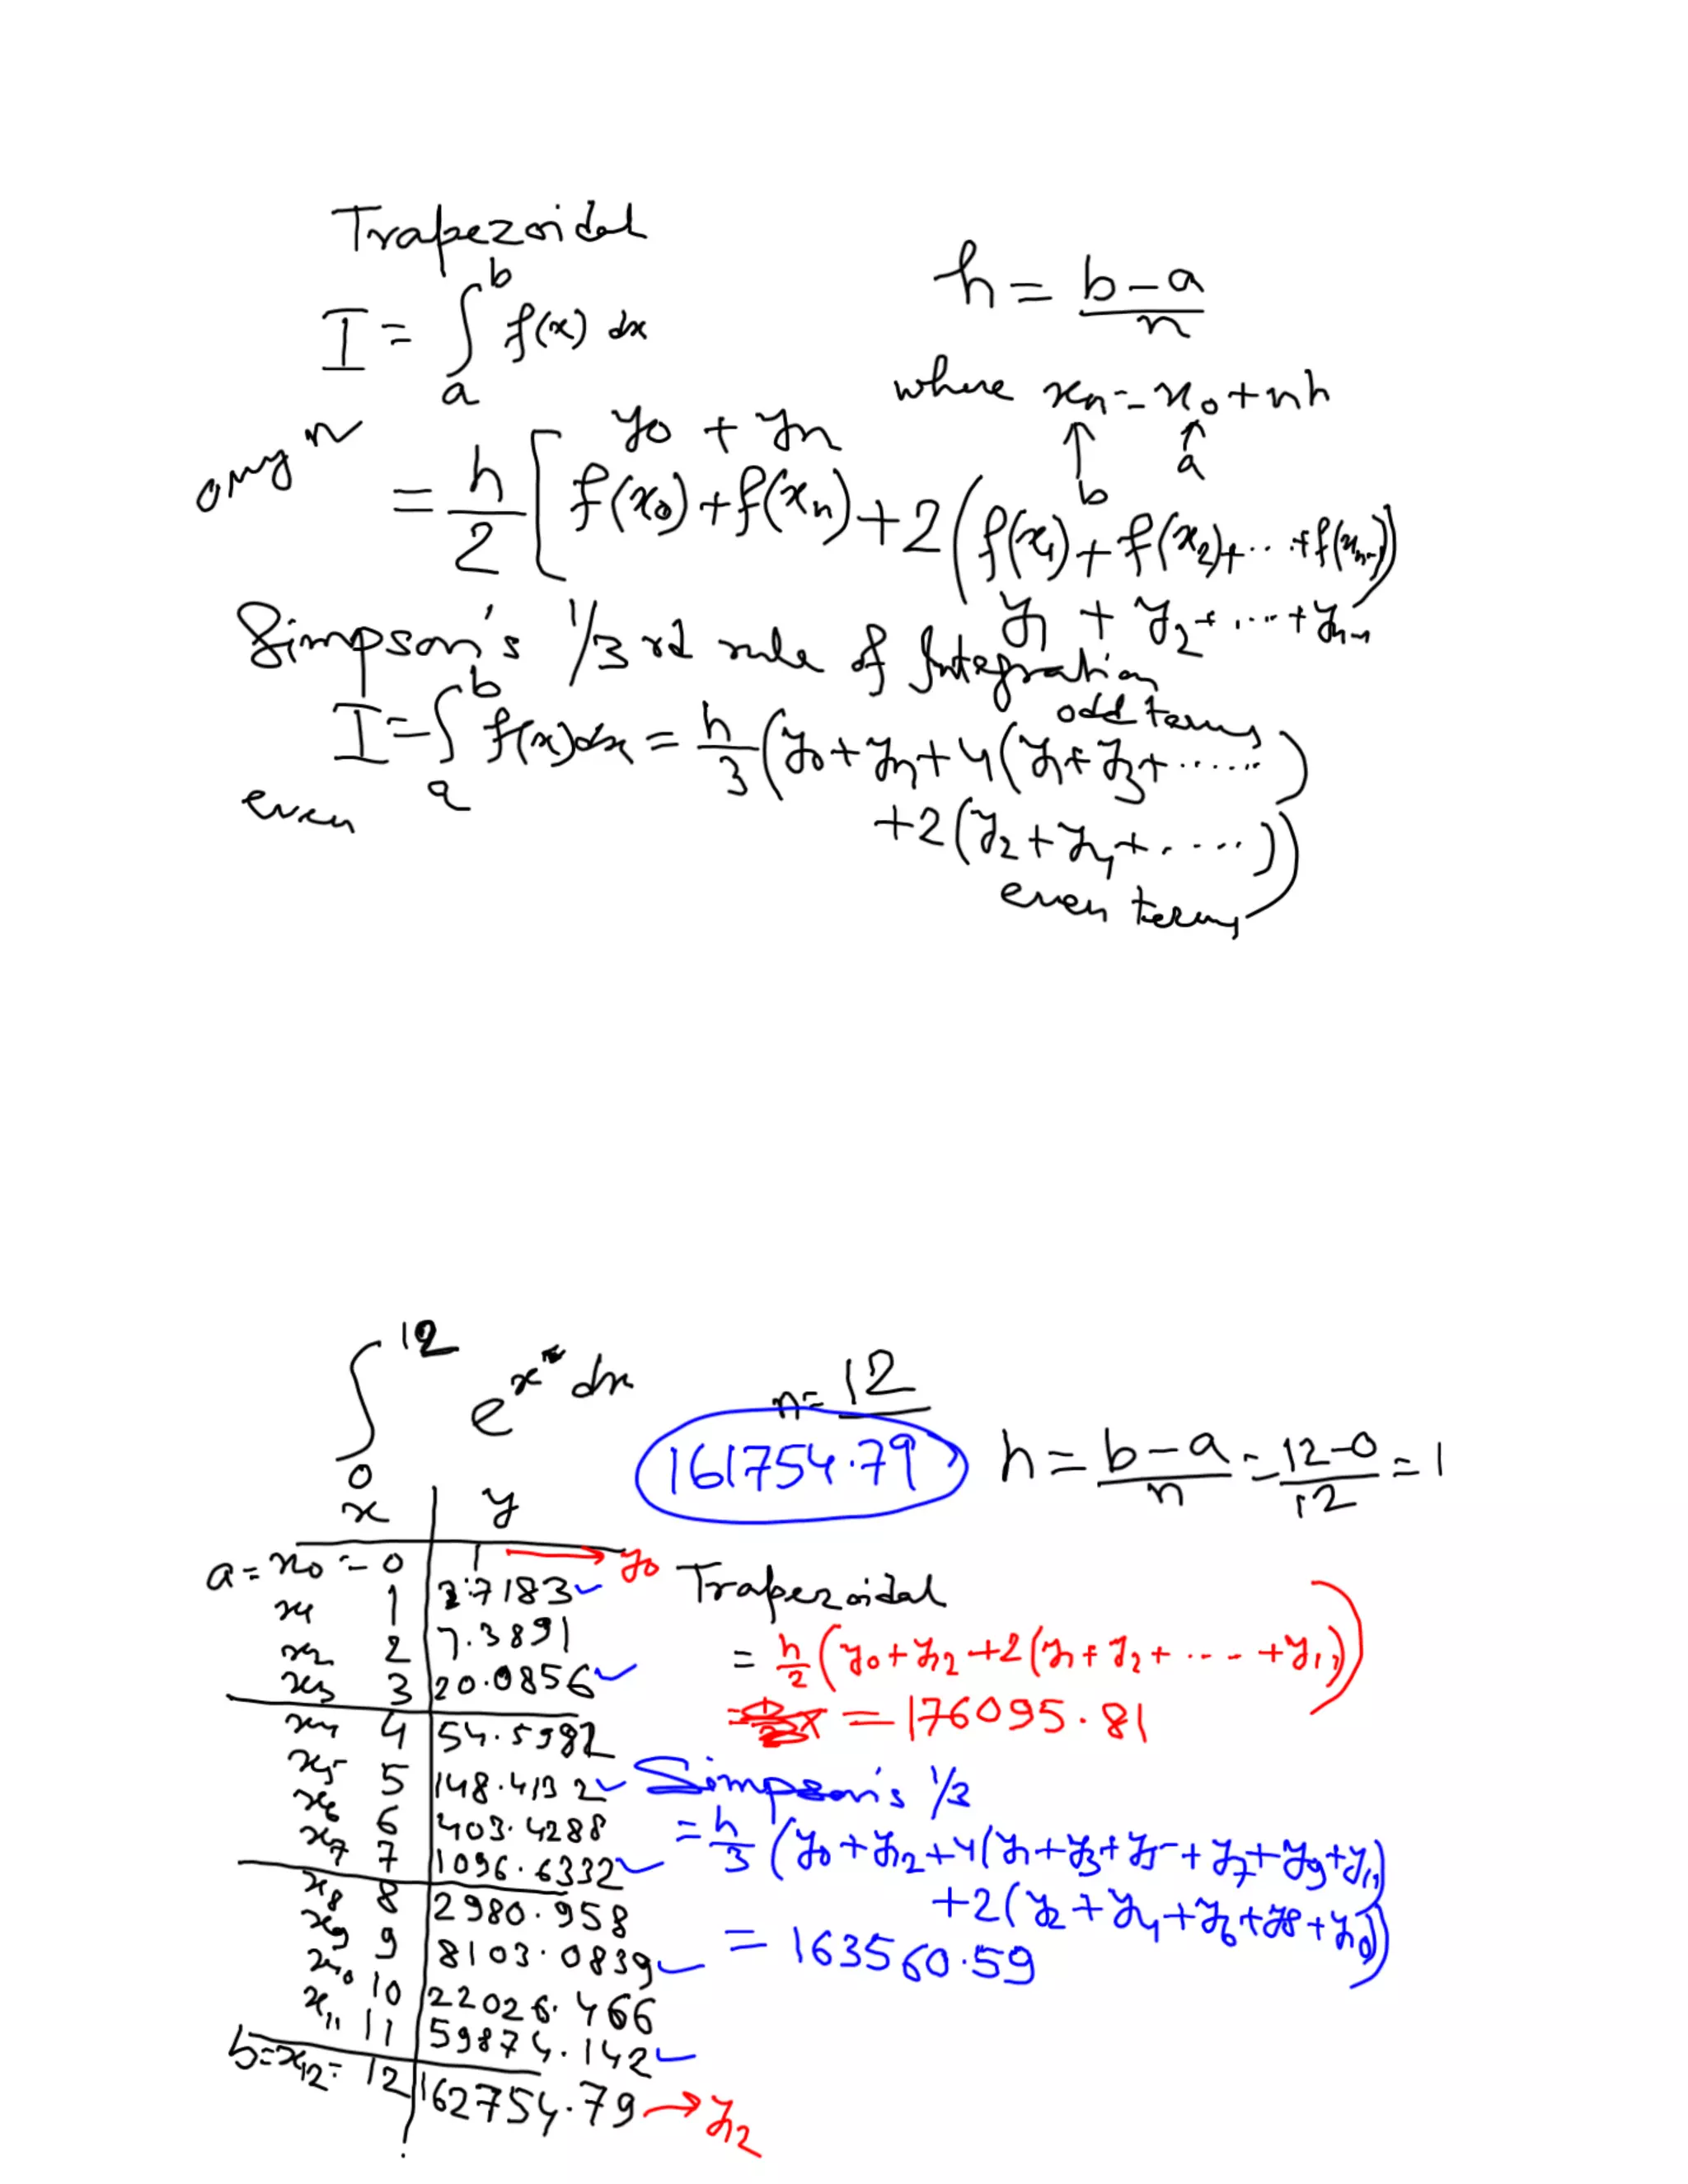 Trapezoidal
I = ∫_a^b f(x) dx
h = (b-a)/n
where xn = x0 + nh
↑ ↑
b a
any n
y0 + yn
= h/2 [ f(x0) + f(xn) + 2 ( f(x1) + f(x2) + ... + f(xn-1) )
y1 + y2 + .... + yn-1
Simpson's 1/3 rd rule of Integration
odd terms
I = ∫_a^b f(x)dx = h/3 ( y0 + yn + 4 ( y1 + y3 + ...... )
even
+2 ( y2 + y4 + ..... ) )
even terms
∫_0^12 e^x dx
n = 12
161754.79
h = (b-a)/n = (12-0)/12 = 1
x | y
a = x0 = 0 | 1 → y0
x1 1 | 2.7183 ✓
x2 2 | 7.3891
x3 3 | 20.0856 ✓
x4 4 | 54.5982
x5 5 | 148.4132 ✓
x6 6 | 403.4288
x7 7 | 1096.6332 ✓
x8 8 | 2980.958
x9 9 | 8103.0839 ✓
x10 10 | 22026.466
x11 11 | 59874.142 ✓
b = x12 = 12 | 162754.79 → y12
Trapezoidal
= h/2 ( y0 + y12 + 2 ( y1 + y2 + .... + y11 ) )
= 176095.81
Simpson's 1/3
= h/3 ( y0 + y12 + 4 ( y1 + y3 + y5 + y7 + y9 + y11 )
+2 ( y2 + y4 + y6 + y8 + y10 ) )
= 163560.59